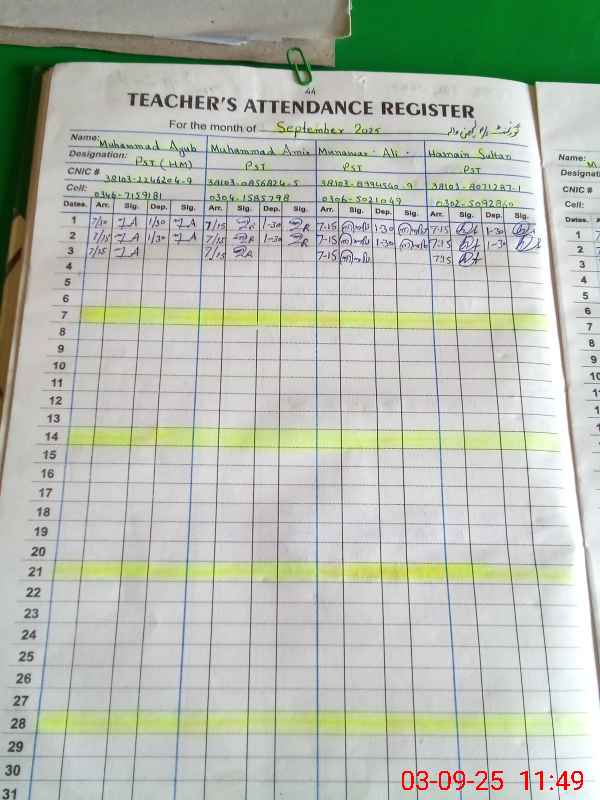 44
TEACHER'S ATTENDANCE REGISTER
For the month of September 2025
Name: Muhammad Ayub Muhammad Amir Munawar Ali Hasnain Sultan
Designation: PST (HM) PST PST PST
CNIC # 38103-2246204-9 38103-0856824-5 38103-8994540-9 38103-8071287-1
Cell: 0346-7159181 0304-1585798 0306-5021049 0302-5092860
Dates. Arr. Sig. Dep. Sig. Arr. Sig. Dep. Sig. Arr. Sig. Dep. Sig. Arr. Sig. Dep. Sig.
1 7/30 1/30 7/15 1-30 7-15 1-30 7-15 1-30
2 7/15 1/30 7/15 1-30 7-15 1-30 7-15 1-30
3 7/15 7/15 7-15 7-15
4
5
6
7
8
9
10
11
12
13
14
15
16
17
18
19
20
21
22
23
24
25
26
27
28
29
30
31
Name:
Designati
CNIC #
Cell:
Dates.
1
2
3
4
5
6
7
8
9
10
03-09-25 11:49